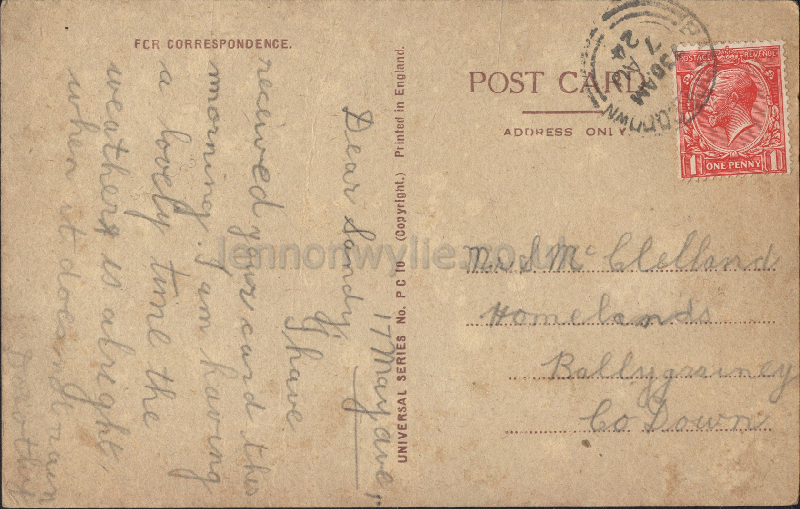 FOR CORRESPONDENCE.
17 May ave,
Dear Sandy,
I have
received your card this
morning. I am having
a lovely time the
weather is alright,
when it does not rain
Dorothy
UNIVERSAL SERIES No. P C 10 (Copyright.) Printed in England.
POST CARD
ADDRESS ONLY
CO. DOWN
7 30 AM
AU
24
POSTAGE REVENUE
1 ONE PENNY 1
Mr S McClelland
Homelands
Ballygrainey
Co Down
lennonwylie.co.uk